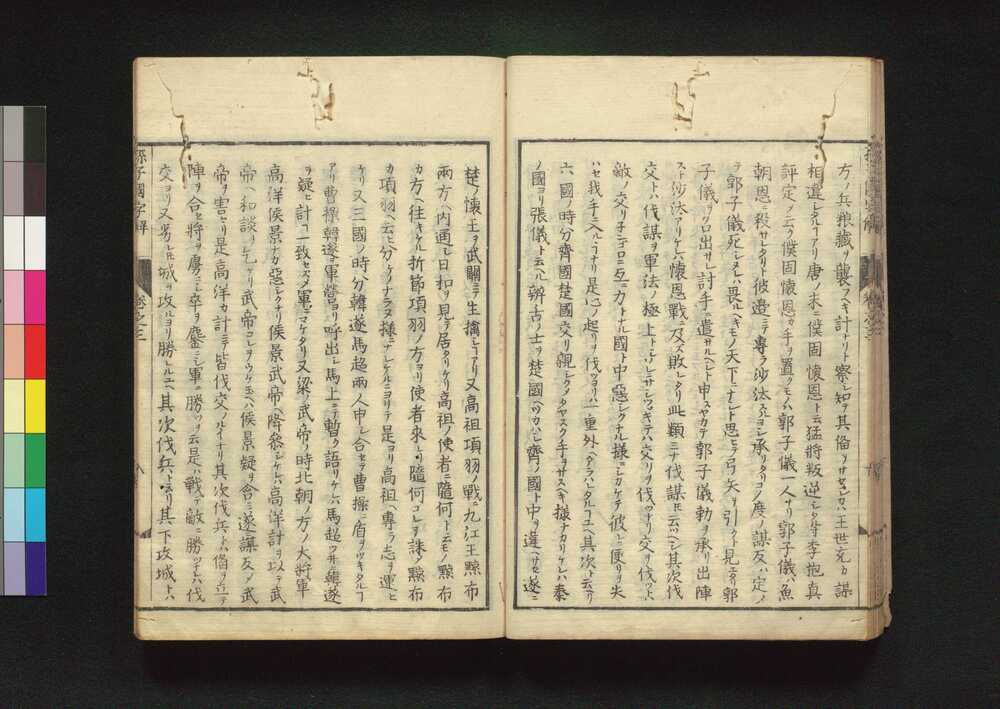 方ノ兵粮藏ヲ襲フヘキ計ナリト察シ知テ其備ヲサセシカハ王世充カ謀
相違シタルヿアリ唐ノ末ニ僕固懷恩ト云猛將叛逆シタル時李抱真
評定ノ云ク僕固懷恩カ手ヲ置クモノハ郭子儀一人ナリ郭子儀ハ魚
朝恩ニ殺サレタリト彼邊ニテ專ラ沙汰スルヨシ承リタリコノ度ノ謀反ハ定メ
テ郭子儀死シタレハ畏ルヘキモノ天下ニナシト思ヒテ弓矢ヲ引クト見エタリ郭
子儀ヲタニ出サレ討手ニ遣サルヘシト申スヤカテ郭子儀勅ヲ承リ出陣
スト沙汰アリケレハ懷恩戰ニ及ハス敗レタリ此類ミナ伐謀ト云ヘシ其次伐
交トハ伐謀ヲ軍法ノ極上トシソレニサシツヽキテハ交リヲ伐ツナリ交ヲ伐ツトハ
敵ノ交リヲナシテ互ニ力トナル國ト中惡シクナル樣ニシカケテ彼レニ便リヲ失
ハセ我手ニ入ルヽナリ是心ノ起リヲ伐ツヨリハ一重外ヘアラハレタルユヘ其次ト云ヘリ
六國ノ時分齊國楚國交リ親シクメタヤスク手ヲサスヘキ樣ナカリケレハ秦
ノ國ヨリ張儀ト云ヘル辨古ノ士ヲ楚國ヘツカハシ齊ノ國ト中ヲ違ハセ遂ニ
楚ノ懷王ヲ武關ニテ生擒シヿアリ又高祖項羽ノ戰ニ九江王黥布
兩方ヘ内通シ日和ヲ見テ居タリケリ高祖ノ使者ニ隨何ト云モノ黥布
カ方ヘ往キケル折節項羽ノ方ヨリ使者來レリ隨何コレヲ誅メ黥布
カ項羽ヘ云ヒ分ケノナラヌ樣ニナシケルニヨリテ是ヨリ高祖ヘ專ラ志ヲ運ヒ
ケリ又三國ノ時分韓遂馬超兩人申シ合セテ曹操ニ盾ヲツキタルヿ
アリ曹操韓遂ヲ軍營ヨリ呼出シ馬上ニテ暫ク語リケレハ馬超ツイニ韓遂
ヲ疑ヒ計ヿ一致セスメ軍ニマケタリ又梁ノ武帝ノ時北朝ノ方ノ大將軍
高洋侯景ナカ惡シクナリ侯景武帝ヘ降參シケレハ高洋計ヲ以テ武
帝ヘ和談ヲ乞ケリ武帝コレヲウケ玉ヘハ侯景疑ヲ含ミ遂ニ謀反メ武
帝ヲ害セリ是高洋カ計ニテ皆伐交ノルイナリ其次伐兵トハ備ヲ立テ
陣ヲ合セ將ヲ虜ニシ卒ヲ鏖ニシ軍ニ勝ツヲ云是ハ戰テ敵ニ勝ツナレハ伐
交ヨリ又劣レモ城ヲ攻ルヨリ勝レルユヘ其次伐兵トイヘリ其下攻城トハ
孫子國字解
卷之三